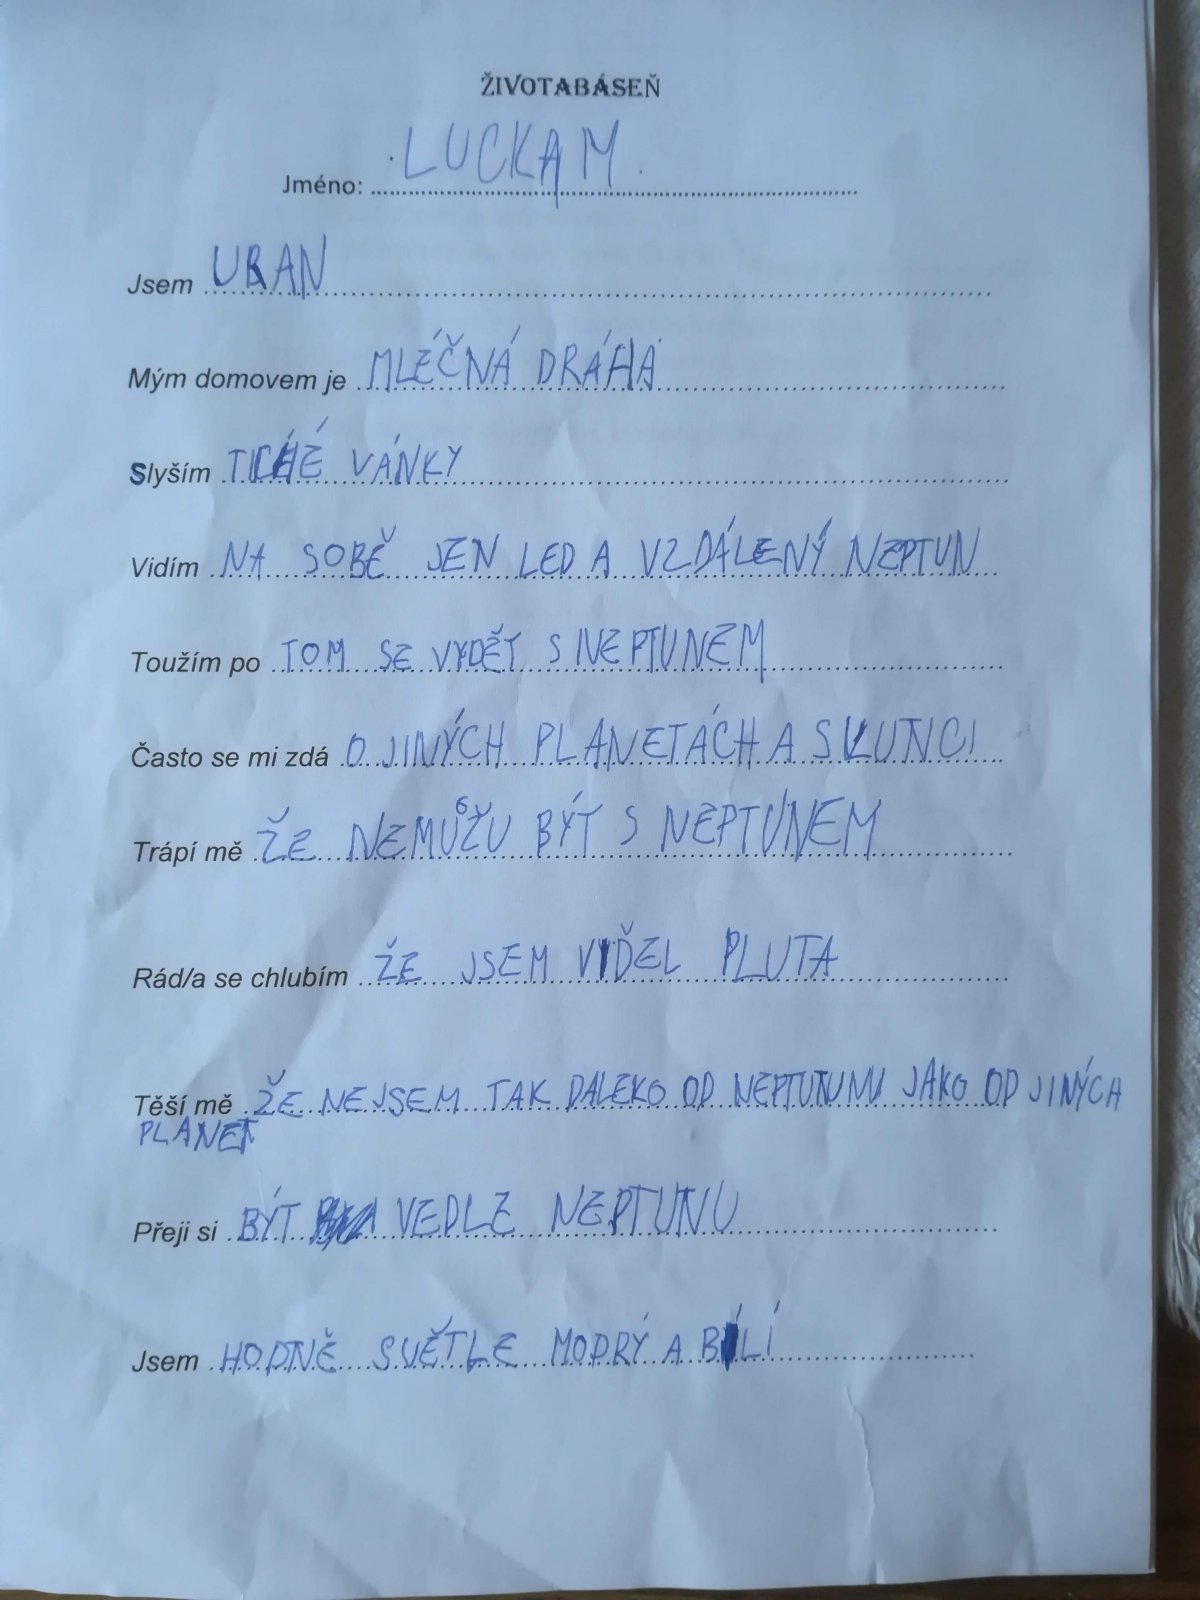 ŽIVOTABÁSEŇ
Jméno: LUCKA M.
Jsem URAN
Mým domovem je MLÉČNÁ DRÁHA
Slyším TICHÉ VÁNKY
Vidím NA SOBĚ JEN LED A VZDÁLENÝ NEPTUN
Toužím po TOM SE VYDĚT S NEPTUNEM
Často se mi zdá O JINÝCH PLANETÁCH A SLUNCI
Trápí mě ŽE NEMŮŽU BÝT S NEPTUNEM
Rád/a se chlubím ŽE JSEM VIĎEL PLUTA
Těší mě ŽE NEJSEM TAK DALEKO OD NEPTUNU JAKO OD JINÝCH
PLANET
Přeji si BÝT VEDLE NEPTUNU
Jsem HODNĚ SVĚTLE MODRÝ A BÍLÍ